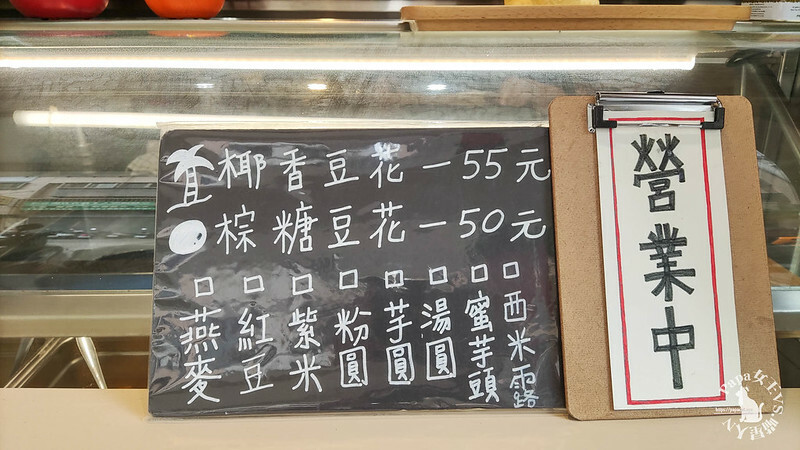 椰香豆花－55元
棕糖豆花－50元
□燕麥
□紅豆
□紫米
□粉圓
□芋圓
□湯圓
□蜜芋頭
□西米露
營業中
Papa女EVS.喵星人N